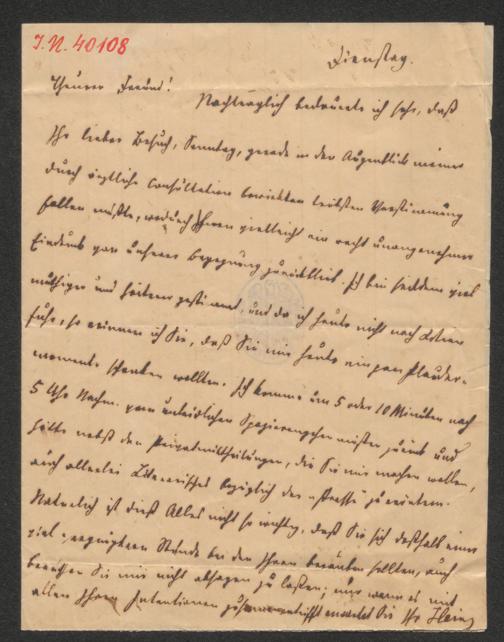 J.N. 40108
Dienstag.
Theurer Freund!
Nachträglich bedauerte ich sehr, daß
Ihr lieber Besuch, Sonntag, gerade in den Augenblick meiner
durch ärztliche Consultation bewirkten trübsten Verstimmung
fallen mußte, wodurch Ihnen vielleicht ein recht unangenehmer
Eindruck von unserer Begegnung zurückblieb. Ich bin seitdem viel
muthiger und heiterer gestimmt, und da ich heute nicht nach
fuhr, so erinnere ich Sie, daß Sie mir heute ein paar Plauder-
momente schenken wollten. Ich komme um 5 oder 10 Minuten nach
5 Uhr Nachm. vom unleidlichen Spazierengehen zurück und
hätte nebst den Privatmittheilungen, die Sie mir machen wollen,
auch allerlei Literarisches bezüglich der "Presse" zu erörtern.
Natürlich ist dieß Alles nicht so wichtig, daß Sie sich deßhalb einer
viel vergnügteren Stunde bei den Ihren berauben sollten, auch
brauchen Sie mir nicht absagen zu lassen; nur wenn es mit
allen Ihren Intentionen zusammentrifft erwartet Sie Ihr